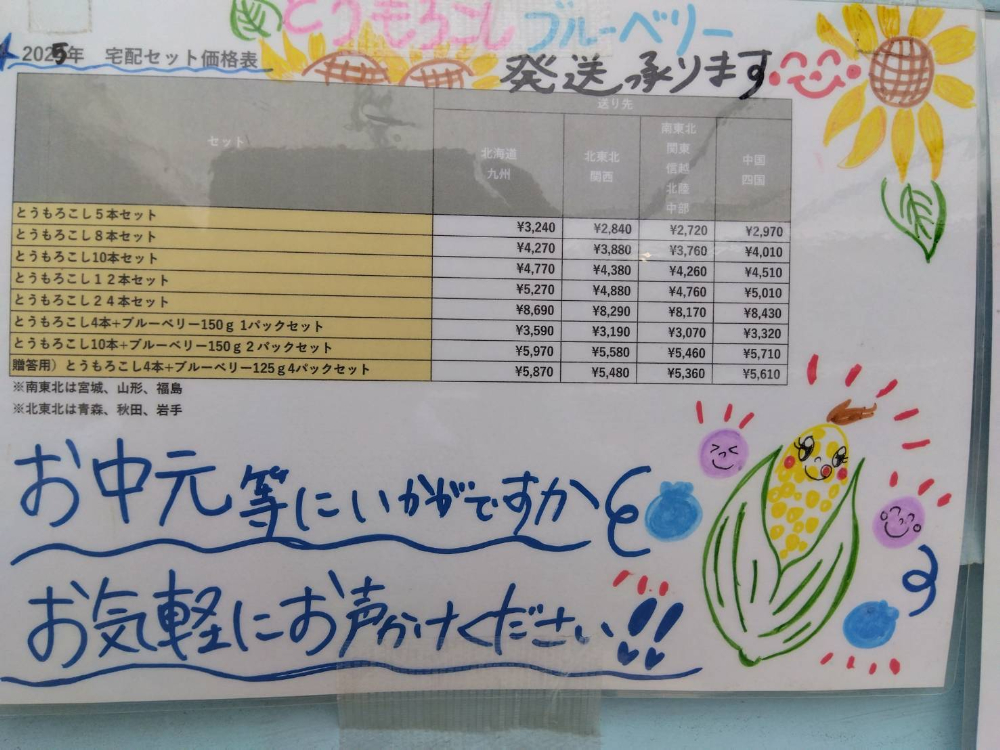 とうもろこし ブルーベリー
発送承ります
2025年 宅配セット価格表
送り先
セット 北海道 九州 北東北 関西 南東北 関東 信越 北陸 中部 中国 四国
とうもろこし５本セット ¥3,240 ¥2,840 ¥2,720 ¥2,970
とうもろこし８本セット ¥4,270 ¥3,880 ¥3,760 ¥4,010
とうもろこし10本セット ¥4,770 ¥4,380 ¥4,260 ¥4,510
とうもろこし１２本セット ¥5,270 ¥4,880 ¥4,760 ¥5,010
とうもろこし２４本セット ¥8,690 ¥8,290 ¥8,170 ¥8,430
とうもろこし4本+ブルーベリー150ｇ 1パックセット ¥3,590 ¥3,190 ¥3,070 ¥3,320
とうもろこし10本+ブルーベリー150ｇ２パックセット ¥5,970 ¥5,580 ¥5,460 ¥5,710
贈答用）とうもろこし4本+ブルーベリー125ｇ4パックセット ¥5,870 ¥5,480 ¥5,360 ¥5,610
※南東北は宮城、山形、福島
※北東北は青森、秋田、岩手
お中元等にいかがですか
お気軽にお声かけください!!